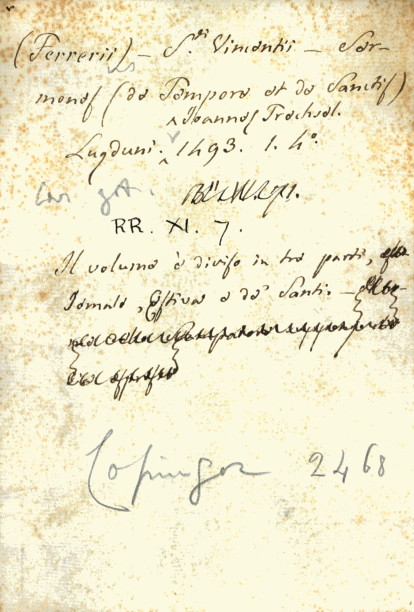 (Ferrerii) – S.ti Vincentii – Ser-
mones (de Tempore et de Sanctis)
Joannes Trechsel.
Lugduni. 1493. 1. 4o.
Car. got.
RR. XI. 7.
Il volume è diviso in tre parti,
Iemale, Estiva e de' Santi. –
Copinger 2468